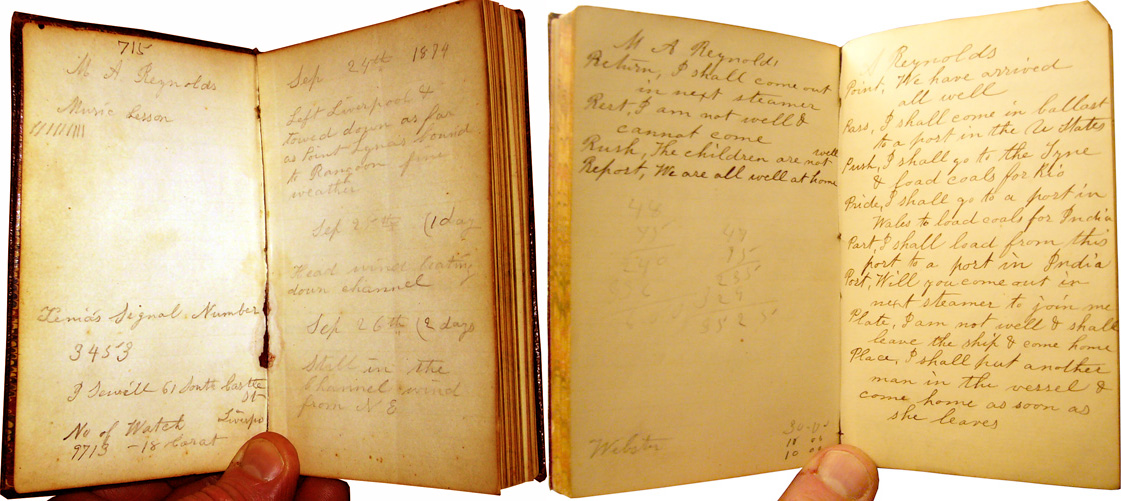 715
M A Reynolds
Music Lesson
Xenia's Signal Number
3453
J Sewell 61 South Castle
St
Liverpo
No of Watch
9713 - 18 Carat
Sep 24th 1874
Left Liverpool &
towed down as far
as Point Lynas bound
to Rangoon fine
weather
Sep 25th (1 day
Head wind beating
down channel
Sep 26th (2 days
Still in the
Channel wind
from N E
M A Reynolds
Return, I shall come out
in next steamer
Rest, I am not well &
cannot come
Rush, The children are not well
Report, We are all well at home
48
45
240
49
35
Webster
30.00
10 00
10 00
J Reynolds
Point, We have arrived
all well
Pass, I shall come in ballast
to a port in the U States
Push, I shall go to the Tyne
& load coals for Rio
Pride, I shall go to a port in
Wales to load coals for India
Part, I shall load from this
port to a port in India
Port, Will you come out in
next steamer to join me
Plate, I am not well & shall
leave the ship & come home
Place, I shall put another
man in the vessel &
come home as soon as
she leaves